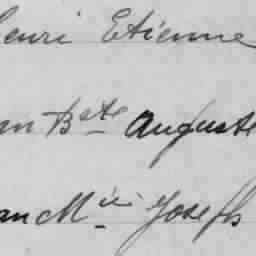 enri Etienne
n Bste Auguste
an Mie Joseph